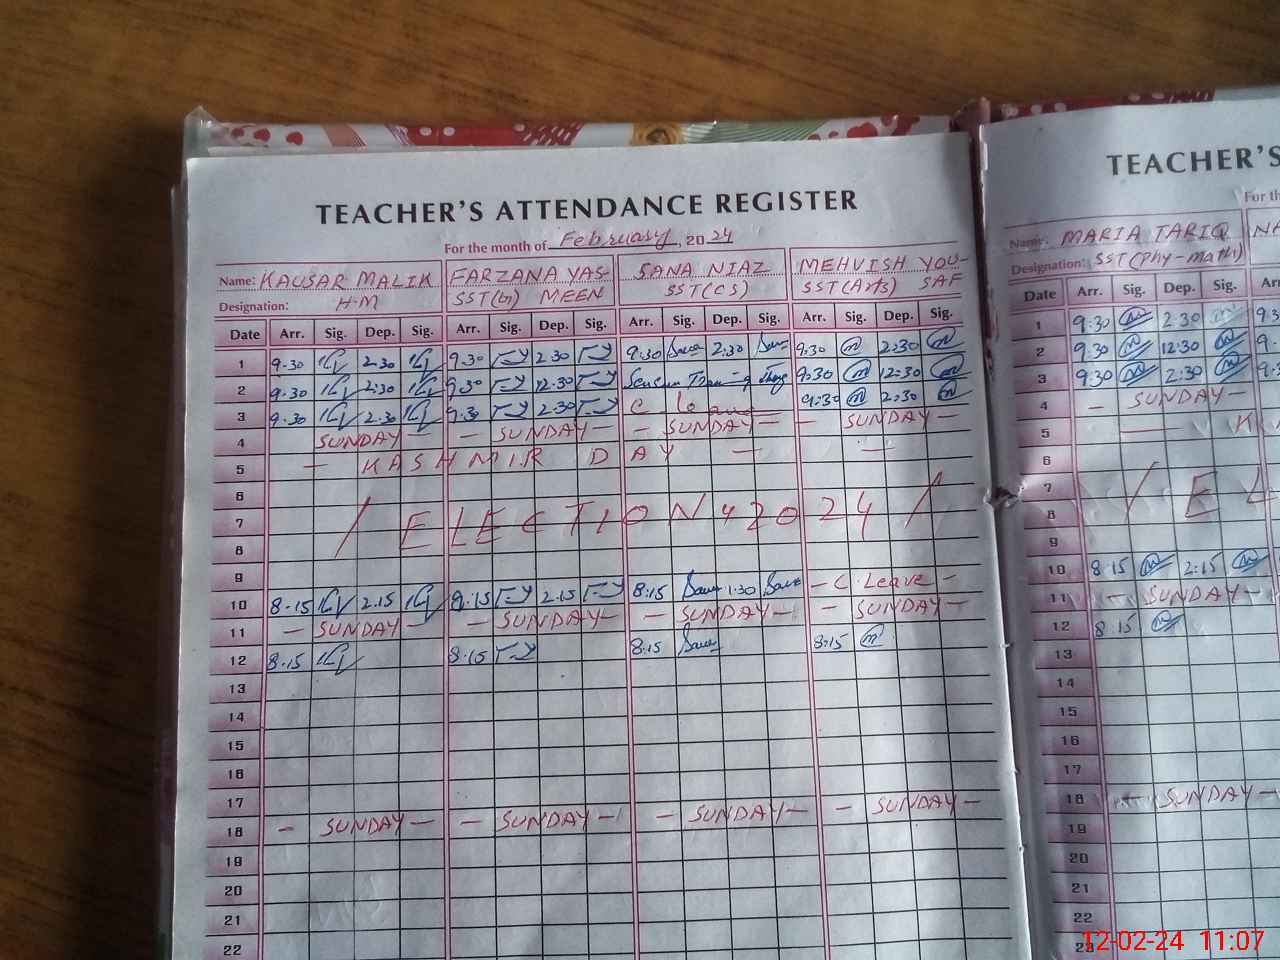 TEACHER'S ATTENDANCE REGISTER
For the month of February, 2024
Name: KAUSAR MALIK FARZANA YAS- SANA NIAZ MEHVISH YOU-
Designation: H-M SST(G) MEEN SST(CS) SST(Arts) SAF
Date Arr. Sig. Dep. Sig. Arr. Sig. Dep. Sig. Arr. Sig. Dep. Sig. Arr. Sig. Dep. Sig.
1 9.30 2.30 9.30 2.30 9:30 2:30 9:30 2:30
2 9.30 2:30 9:30 12:30 Training 9:30 12:30
3 9.30 2.30 9:30 2:30 C. leave 9:30 2:30
4 SUNDAY - - SUNDAY - - SUNDAY - - SUNDAY -
5 - KASHMIR DAY - -
6
7 / ELECTION, 2024 /
8
9
10 8.15 2.15 8.15 2.15 8:15 1:30 - C. Leave -
11 - SUNDAY - - SUNDAY - - SUNDAY - - SUNDAY -
12 8.15 8.15 8:15 8:15
13
14
15
16
17
18 - SUNDAY - - SUNDAY - - SUNDAY - - SUNDAY -
19
20
21
22
TEACHER'S
For th
Name: MARIA TARIQ
Designation: SST(Phy-math)
Date Arr. Sig. Dep. Sig. Arr.
1 9:30 2:30
2 9:30 12:30
3 9:30 2:30
4 - SUNDAY -
5 - K
6
7 / EL
8
9
10 8:15 2:15
11 - SUNDAY -
12 8:15
13
14
15
16
17
18 - SUNDAY -
19
20
21
22
12-02-24 11:07